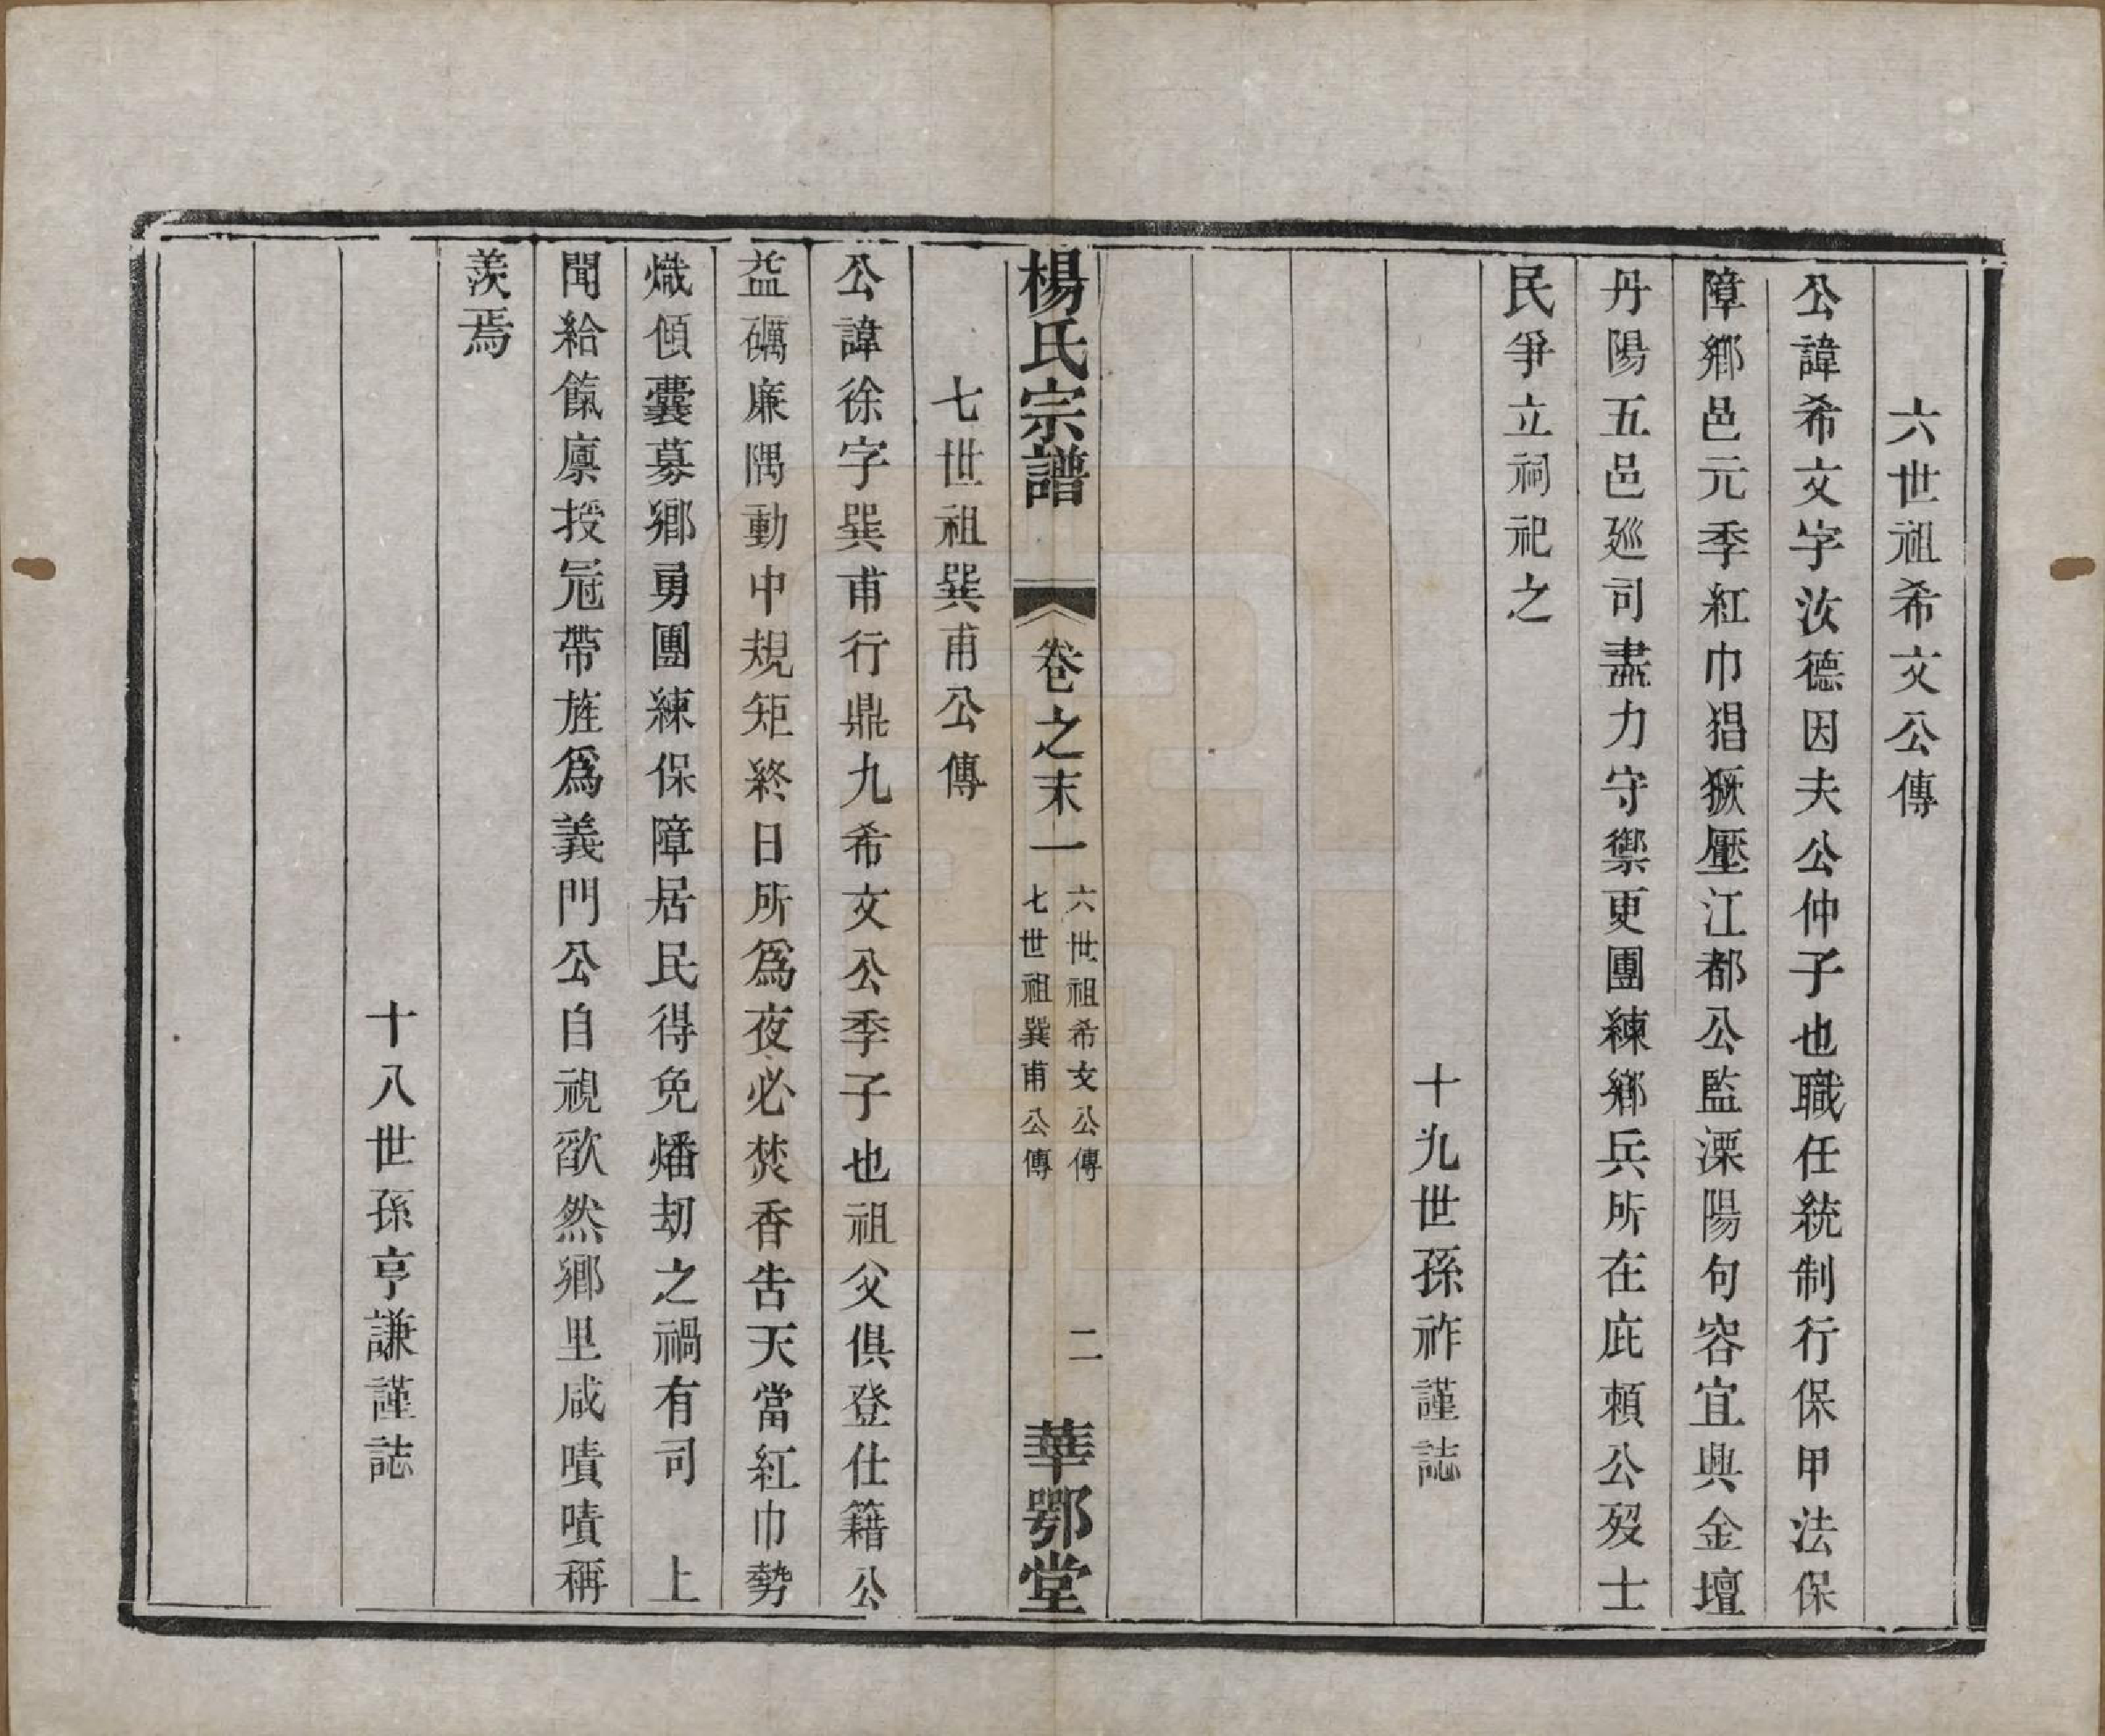 六世祖希文公傳
公諱希文字汝德因夫公仲子也職任統制行保甲法保
障鄉邑元季紅巾猖獗壓江都公監溧陽句容宜興金壇
丹陽五邑廵司盡力守禦更團練鄉兵所在庇頼公歿士
民爭立祠祀之
十九世孫祚謹誌
楊氏宗譜
卷之末一
六世祖希文公傳
七世祖巽甫公傳
二
華鄂堂
七世祖巽甫公傳
公諱徐字巽甫行鼎九希文公季子也祖父俱登仕籍公
益礪廉隅動中規矩終日所爲夜必焚香吿天當紅巾勢
熾傾囊募鄉勇團練保障居民得免燔刼之禍有司　上
聞給餼廪授冠帶旌爲義門公自視歉然鄉里咸嘖嘖稱
羨焉
十八世孫亨謙謹誌